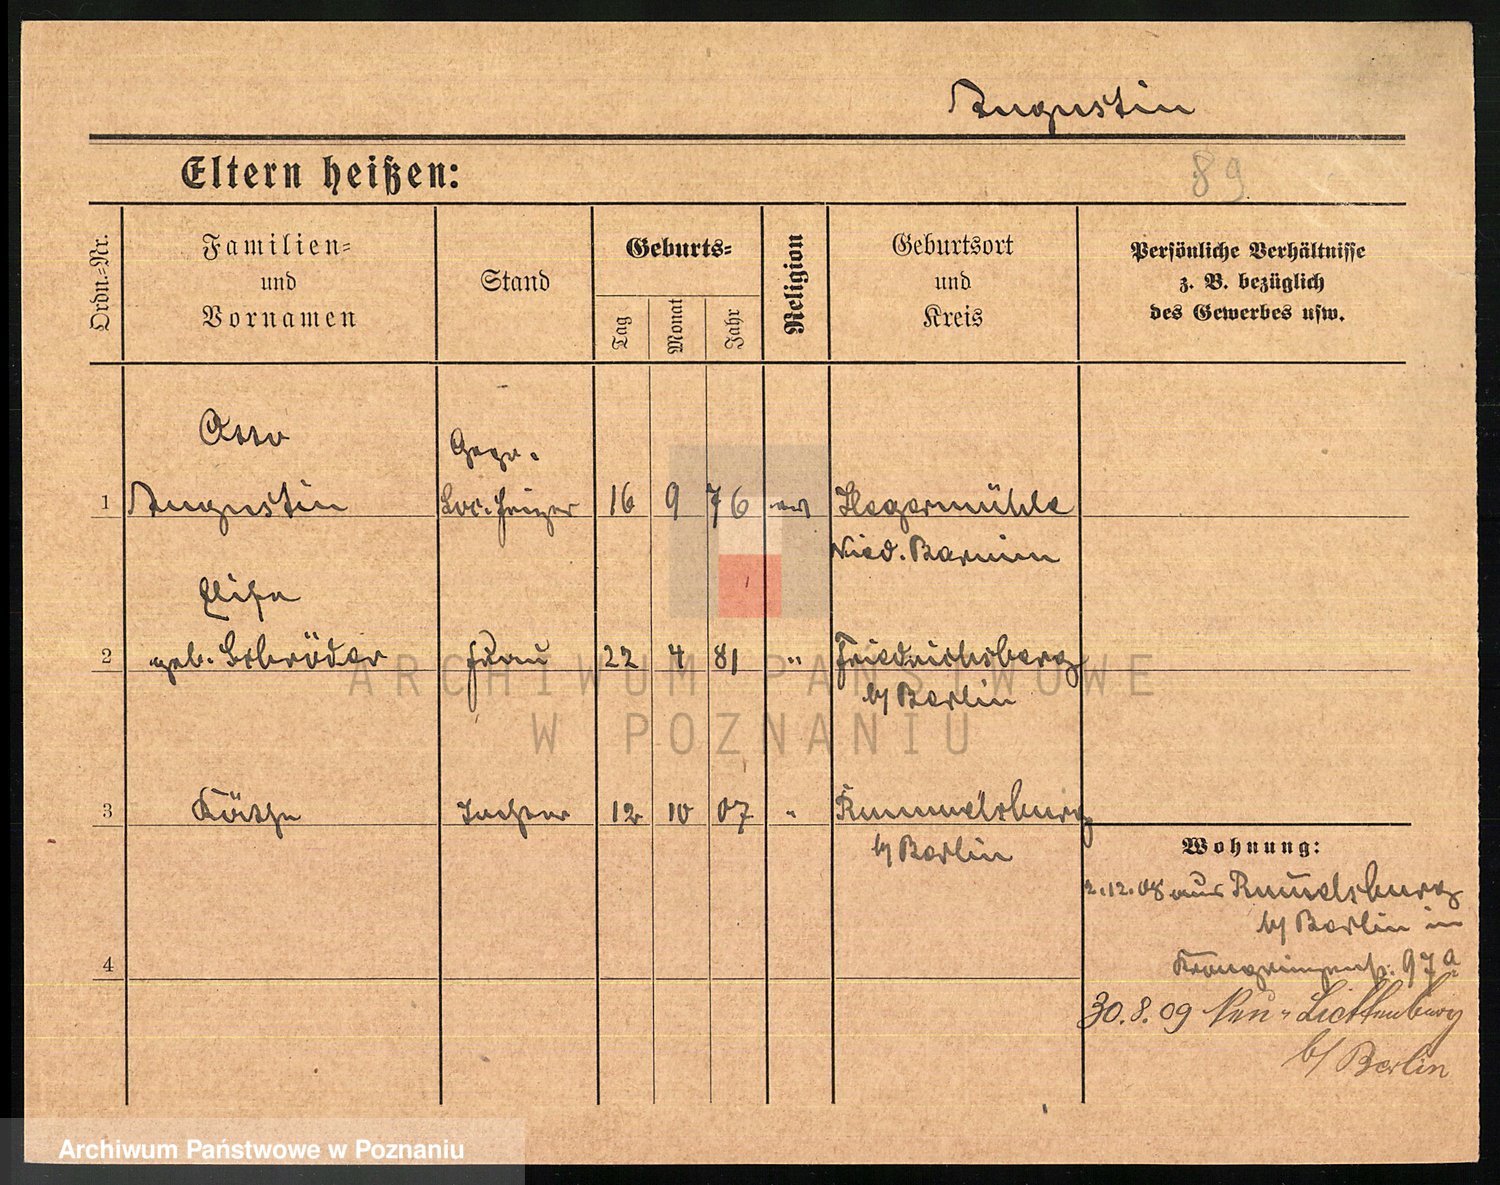 Augustin
Eltern heißen:
89
Ordn.=Nr.
Familien=
und
Vornamen
Stand
Geburts=
Tag
Monat
Jahr
Religion
Geburtsort
und
Kreis
Persönliche Verhältnisse
z. B. bezüglich
des Gewerbes usw.
Otto
Gepr.
1 Augustin Loc. Heizer 16 9 76 ev Hegermühle
Nied. Barnim
Elise
2 geb. Schröder Frau 22 4 81 " Friedrichsberg
b/ Berlin
3 Käthe Tochter 12 10 07 " Rummelsburg
b/ Berlin
Wohnung:
2.12.08 aus Rummelsburg
b/ Berlin in
4
Kronprinzenstr. 97a
30.8.09 Neu-Lichtenberg
b/ Berlin
ARCHIWUM PAŃSTWOWE
W POZNANIU
Archiwum Państwowe w Poznaniu